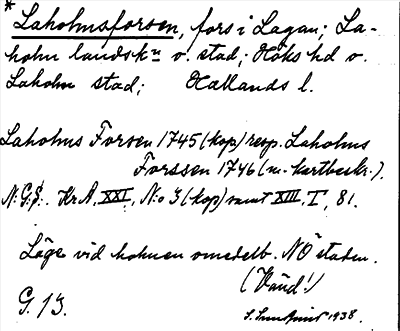 * Laholmsforsen, fors i Lagan; La-
holm landskn o. stad; Höks hd o.
Laholm stad; Hallands l.
Laholms Forsen 1745 (kop) resp. Laholms
Forssen 1746 (m. kartbeskr.).
N:G:S: Kr A, XXI, N:o 3 (kop) samt XIII, I, 81.
Läge vid holmen omedelb. NÖ staden.
(Vänd!)
G. 13.
1938.